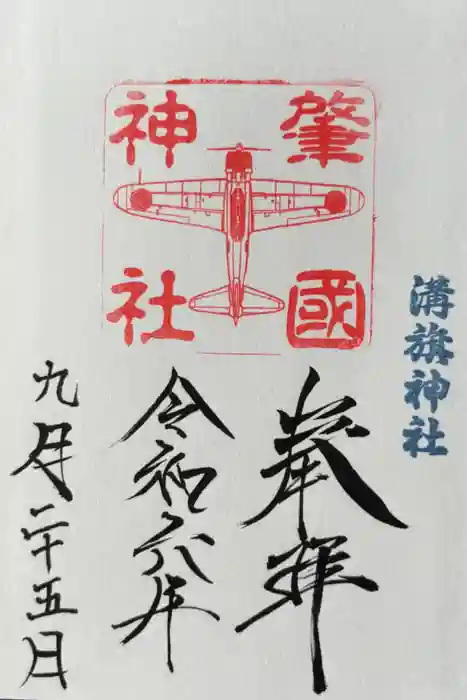 肇國
神社
溝旗神社
奉拝
令和六年
九月二十五日